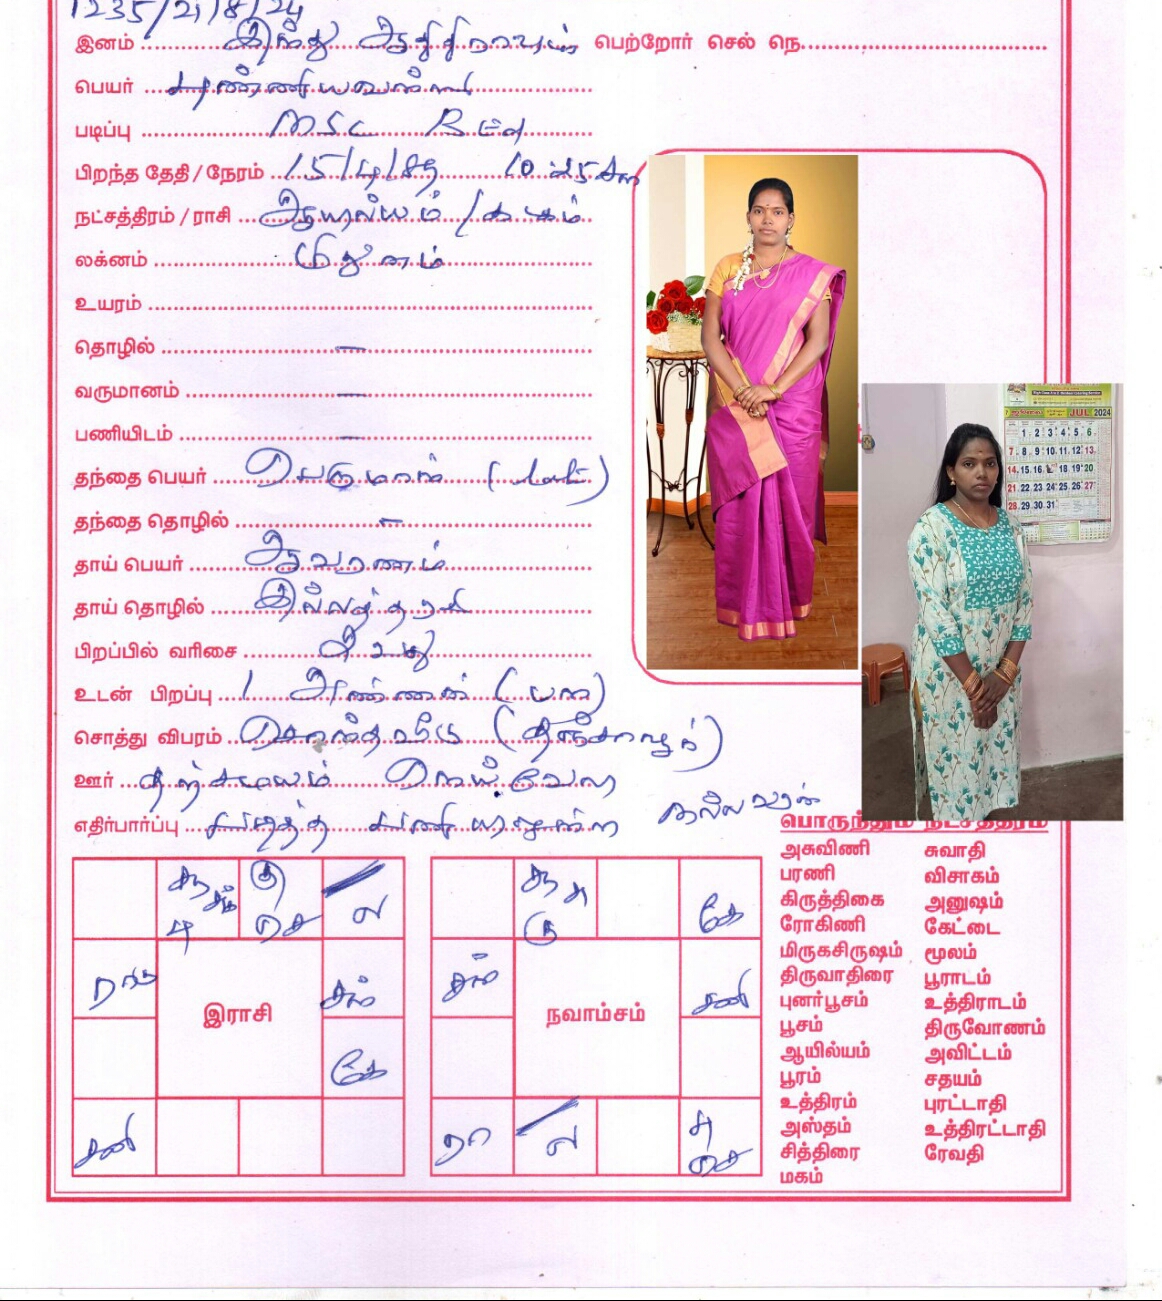 1235/21/8/24
இனம் இந்து ஆதிதிராவிடர் பெற்றோர் செல் நெ.
பெயர் புண்ணியவள்ளி
படிப்பு MSC B Ed
பிறந்த தேதி / நேரம் 15/4/89 10 25
நட்சத்திரம் / ராசி ஆயில்யம் / கடகம்
லக்னம் மிதுனம்
உயரம்
தொழில் –
வருமானம் –
பணியிடம் –
தந்தை பெயர் பெருமாள் (Late)
தந்தை தொழில் –
தாய் பெயர்
தாய் தொழில் இல்லத்தரசி
பிறப்பில் வரிசை
உடன் பிறப்பு 1 அண்ணன்
சொத்து விபரம் சொந்த வீடு (தஞ்சாவூர்)
ஊர்
எதிர்பார்ப்பு படித்த நல்ல வரன்
பொருந்தும் நட்சத்திரம்
அசுவிணி சுவாதி
பரணி விசாகம்
கிருத்திகை அனுஷம்
ரோகிணி கேட்டை
மிருகசிருஷம் மூலம்
திருவாதிரை பூராடம்
புனர்பூசம் உத்திராடம்
பூசம் திருவோணம்
ஆயில்யம் அவிட்டம்
பூரம் சதயம்
உத்திரம் புரட்டாதி
அஸ்தம் உத்திரட்டாதி
சித்திரை ரேவதி
மகம்
கு
செ ல
சந்
இராசி
கே
சனி
கு கே
சந் சனி
நவாம்சம்
ரா ல
செ
JUL 2024
1 2 3 4 5 6
7 8 9 10 11 12 13
14 15 16 18 19 20
21 22 23 24 25 26 27
28 29 30 31